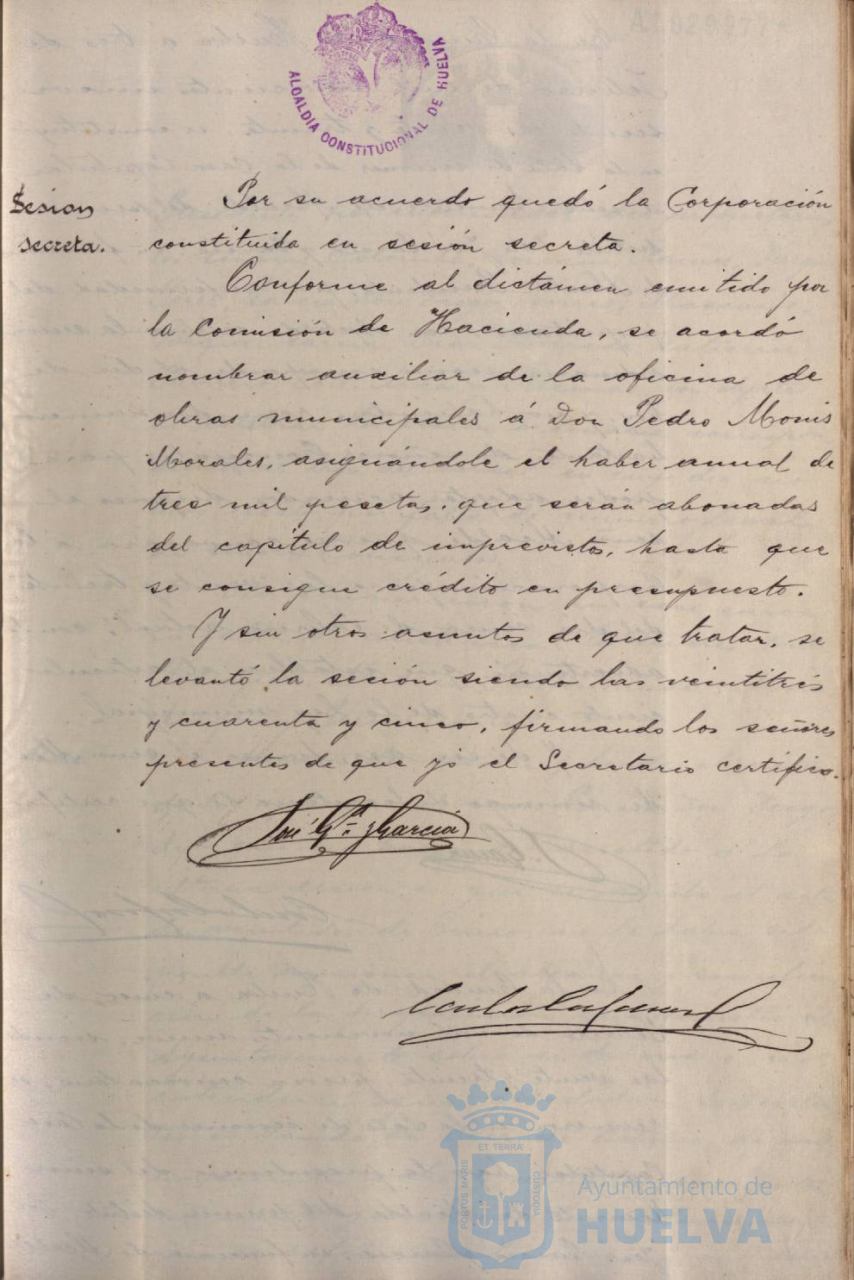 ALCALDÍA CONSTITUCIONAL DE HUELVA
Sesion
secreta.
Por su acuerdo quedó la Corporación
constituida en sesión secreta.
Conforme al dictámen emitido por
la Comisión de Hacienda, se acordó
nombrar auxiliar de la oficina de
obras municipales á Don Pedro Monis
Morales, asignándole el haber anual de
tres mil pesetas, que serán abonadas
del capítulo de imprevistos, hasta que
se consigue crédito en presupuesto.
Y sin otros asuntos de que tratar, se
levantó la seción siendo las veintitrés
y cuarenta y cinco, firmando los señores
presentes de que yó el Secretario certifico.
José Gª y García
ET TERRÆ
PORTUS MARIS
CUSTODIA
Ayuntamiento de
HUELVA